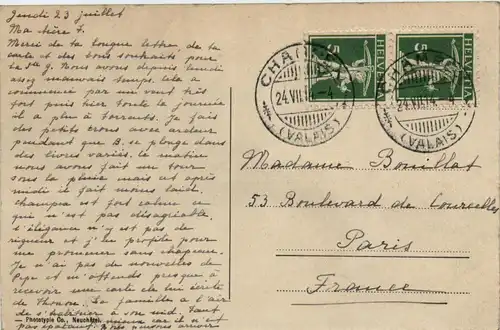 Jeudi 23 juillet
Ma chère J.
Merci de ta longue lettre, de ta
carte et des bons souhaits pour
le 29. Nous avons depuis lundi
assez mauvais temps, cela a
commencé par un vent très
fort puis hier toute la journée
il a plu à torrents. Je fais
des petits crocus avec ardeur
pendant que B. se plonge dans
des livres variés. Ce matin
nous avons fait un tour
sous la pluie mais cet après
midi il fait moins laid.
Champex est fort calme ce
qui n'est pas désagréable.
L'élégance n'y est pas de
rigueur et j'en profite pour
me promener sans chapeau.
Je n'ai pas de nouvelles de
Pepe et m'attends presque à
recevoir une carte de lui écrite
de Thonon. La famille a l'air
de s'habituer à son sid. Tant
mieux car il n'est
pas épatant. Nous
Phototypie Co., Neuchâtel.
HELVETIA
5
HELVETIA
5
CHAMPEX
24.VII.14.-4
(VALAIS)
CHAMPEX
24.VII.14.-4
(VALAIS)
Madame Bouillat
53 Boulevard de Courcelles
Paris
France